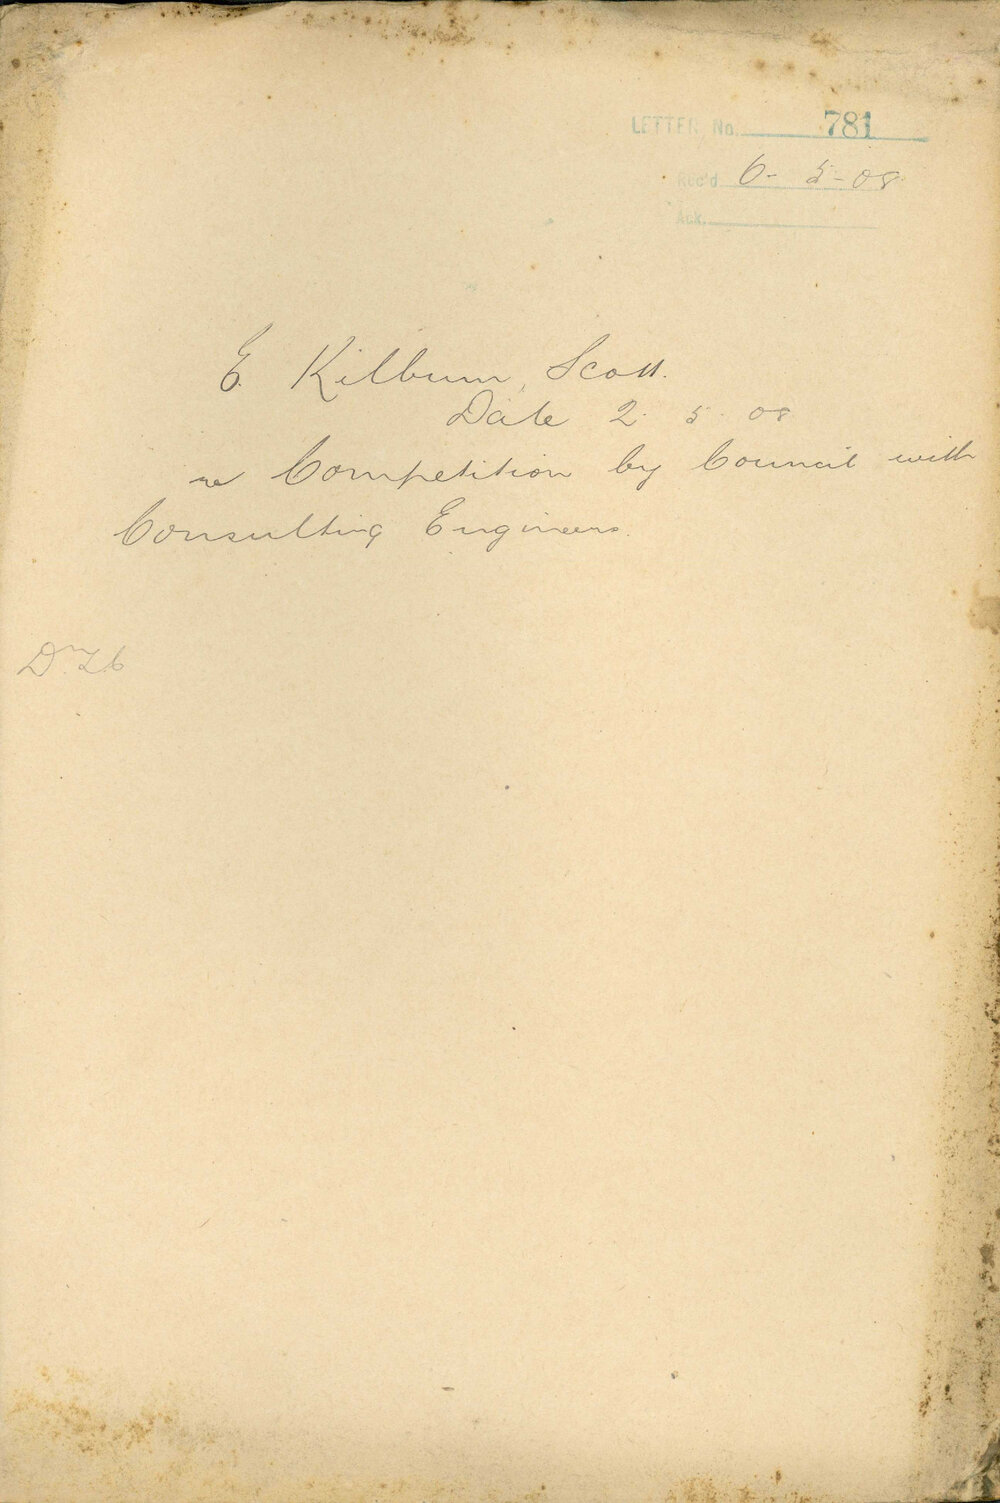 LETTER No. 781
Rec'd 6- 5- 08
Ack.
E. Kilburn Scott.
Date 2. 5. 08
re Competition by Council with
Consulting Engineers.